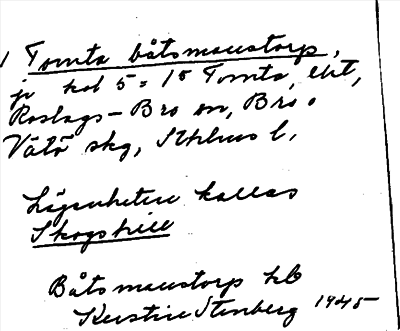 1 Tomta båtsmanstorp,
jr kod 5:18 Tomta, ekt,
Roslags-Bro sn, Bro o
Vätö skg, Sthlms l,
Lägenheten kallas
Skogshill
Båtsmanstorp kb
Kerstin Stenberg 1945